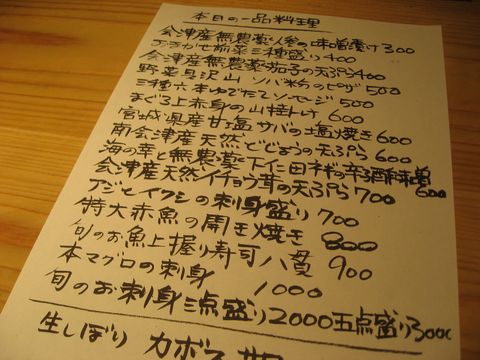 本日の一品料理
会津産無農薬人参の味噌漬け300
おまかせ前菜三種盛り400
会津産無農薬茄子の天ぷら400
野菜具沢山ソバ粉のピザ500
三種六本ゆでたてソーセージ500
まぐろ上赤身の山掛け600
宮城県産甘塩サバの塩焼き600
南会津産天然どじょうの天ぷら600
海の幸と無農薬下仁田ネギの辛酒味噌600
会津産天然イチョウ茸の天ぷら700
アジとイワシの刺身盛り700
特大赤魚の開き焼き800
旬のお魚上握り寿司八貫900
本マグロの刺身1000
旬のお刺身三点盛り2000五点盛り3000
生しぼり カボス